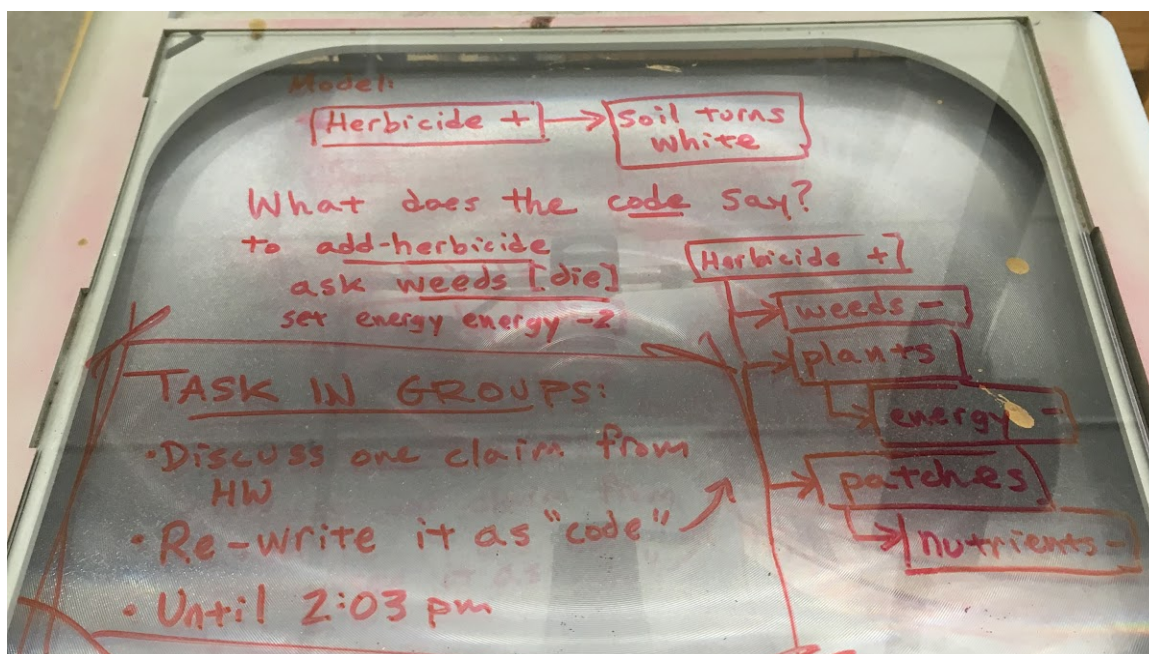 Model:
Herbicide + → Soil turns
white
What does the code say?
to add-herbicide
ask weeds [die]
set energy energy -2
Herbicide +
weeds -
plants
energy -
patches
nutrients -
TASK IN GROUPS:
• Discuss one claim from
HW
• Re-write it as "code"
• Until 2:03 pm